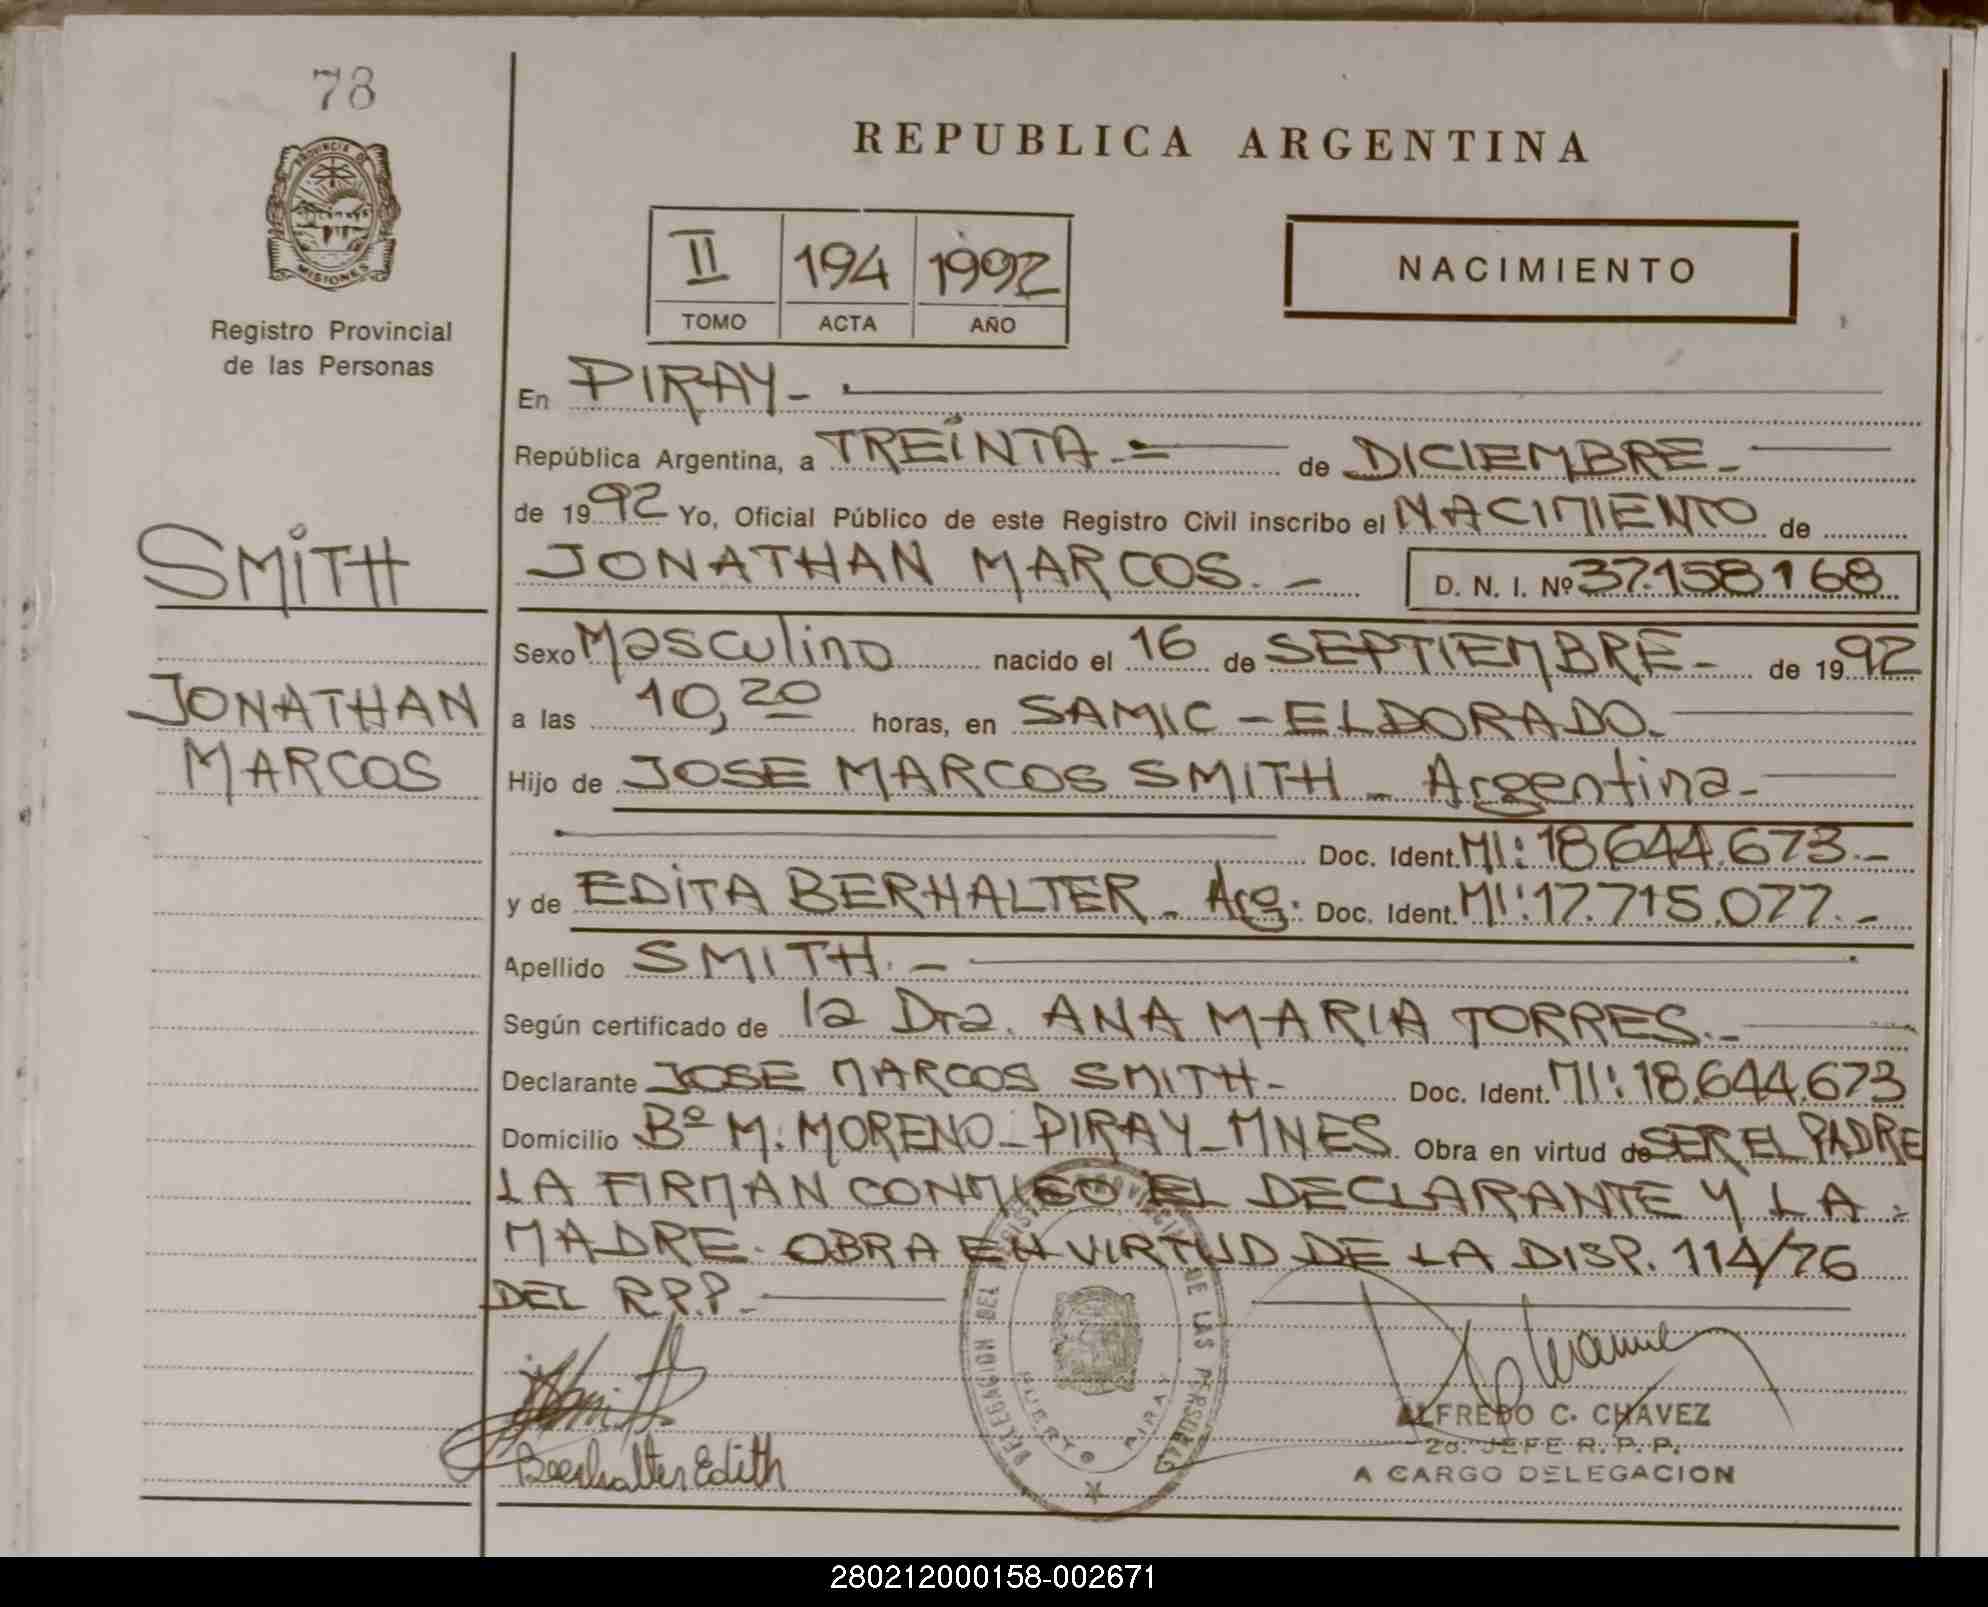 78
PROVINCIA DE
MISIONES
Registro Provincial
de las Personas
SMITH
JONATHAN
MARCOS
REPUBLICA ARGENTINA
II 194 1992
TOMO ACTA AÑO
NACIMIENTO
En PIRAY-
República Argentina, a TREINTA.= de DICIEMBRE_
de 1992 Yo, Oficial Público de este Registro Civil inscribo el NACIMIENTO de
JONATHAN MARCOS._ D. N. I. Nº 37.158168
Sexo Masculino nacido el 16 de SEPTIEMBRE_ de 1992
a las 10,20 horas, en SAMIC - ELDORADO.
Hijo de JOSE MARCOS SMITH _ Argentina_
Doc. Ident. MI: 18.644.673._
y de EDITA BERHALTER _ Arg. Doc. Ident. MI: 17.715.077._
Apellido SMITH._
Según certificado de la Dra. ANA MARIA TORRES._
Declarante JOSE MARCOS SMITH_ Doc. Ident. MI: 18.644.673
Domicilio Bº M. MORENO_PIRAY_MNES. Obra en virtud de SER EL PADRE
LA FIRMAN CONMIGO EL DECLARANTE Y LA
MADRE. OBRA EN VIRTUD DE LA DISP. 114/76
DEL R.P.P._
DELEGACION DEL REGISTRO PROVINCIAL DE LAS PERSONAS
PUERTO PIRAY
Beerhalter Edith
ALFREDO C. CHAVEZ
2o. JEFE R. P. P.
A CARGO DELEGACION
280212000158-002671